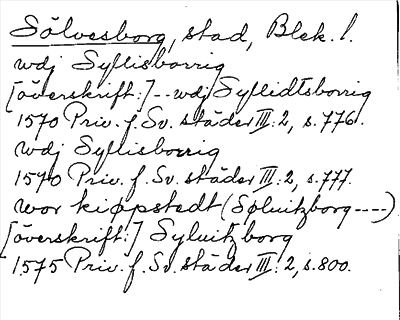 Sölvesborg, stad, Blek. l.
wdj Syflisborrig
[överskrift:] -- wdj Syflidtsborrig
1570 Priv. f. Sv. städer III: 2, s. 776.
wdj Syflisborrig
1570 Priv. f. Sv. städer III: 2, s. 777.
wor kiøpstedt (Søluitzborg ----)
[överskrift:] Syluitzborg
1575 Priv. f. Sv. städer III: 2, s. 800.